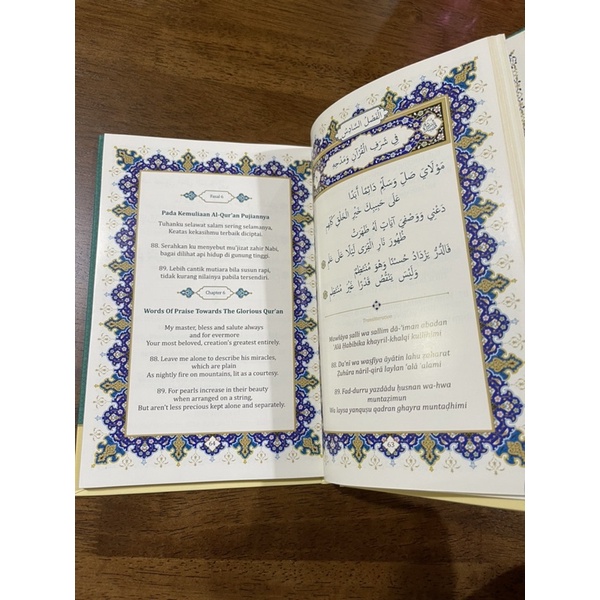 Pasal 6
Pada Kemuliaan Al-Qur'an Pujiannya
Tuhanku selawat salam sering selamanya,
Keatas kekasihmu terbaik diciptai.
88. Serahkan ku menyebut mu'jizat zahir Nabi,
bagai dilihat api hidup di gunung tinggi.
89. Lebih cantik mutiara bila susun rapi,
tidak kurang nilainya pabila tersendiri.
Chapter 6
Words Of Praise Towards The Glorious Qur'an
My master, bless and salute always
and for evermore
Your most beloved, creation's greatest entirely.
88. Leave me alone to describe his miracles,
which are plain
As nightly fire on mountains, lit as a courtesy.
89. For pearls increase in their beauty
when arranged on a string,
But aren't less precious kept alone and separately.
44
الفصل السادس
في شرف القرآن ومدحه
مَوْلَايَ صَلِّ وَسَلِّمْ دَائِمًا أَبَدًا
عَلَى حَبِيبِكَ خَيْرِ الْخَلْقِ كُلِّهِمِ
دَعْنِي وَوَصْفِيَ آيَاتٍ لَهُ ظَهَرَتْ
ظُهُورَ نَارِ الْقِرَى لَيْلًا عَلَى عَلَمِ
فَالدُّرُّ يَزْدَادُ حُسْنًا وَهُوَ مُنْتَظِمٌ
وَلَيْسَ يَنْقُصُ قَدْرًا غَيْرَ مُنْتَظِمِ
Transliteration
Mawlāya salli wa sallim dā-'iman abadan
'Alā Ḥabībika khayril-khalqi kullihimi
88. Da'nī wa waṣfiya āyātin lahu ẓaharat
Ẓuhūra nāril-qirā laylan 'alā 'alami
89. Fad-durru yazdādu ḥusnan wa-hwa
muntaẓimun
Wa laysa yanquṣu qadran ghayra muntaẓhimi